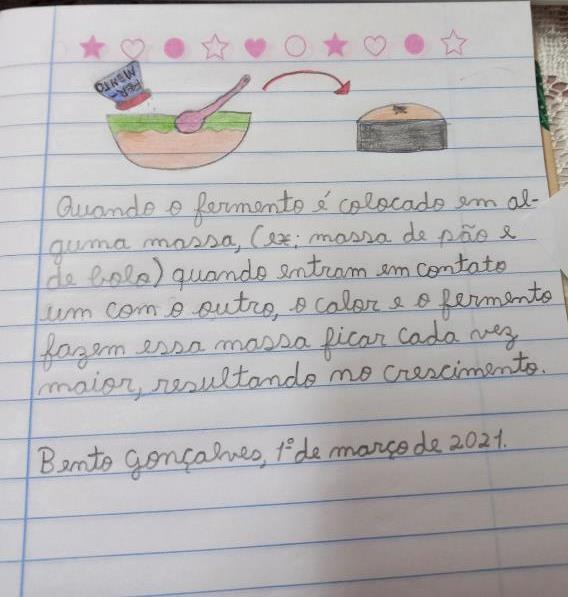 FER-
MENTO
Quando o fermento é colocado em al-
guma massa, (ex: massa de pão e
de bolo) quando entram em contato
um com o outro, o calor e o fermento
fazem essa massa ficar cada vez
maior, resultando no crescimento.
Bento Gonçalves, 1° de março de 2021.